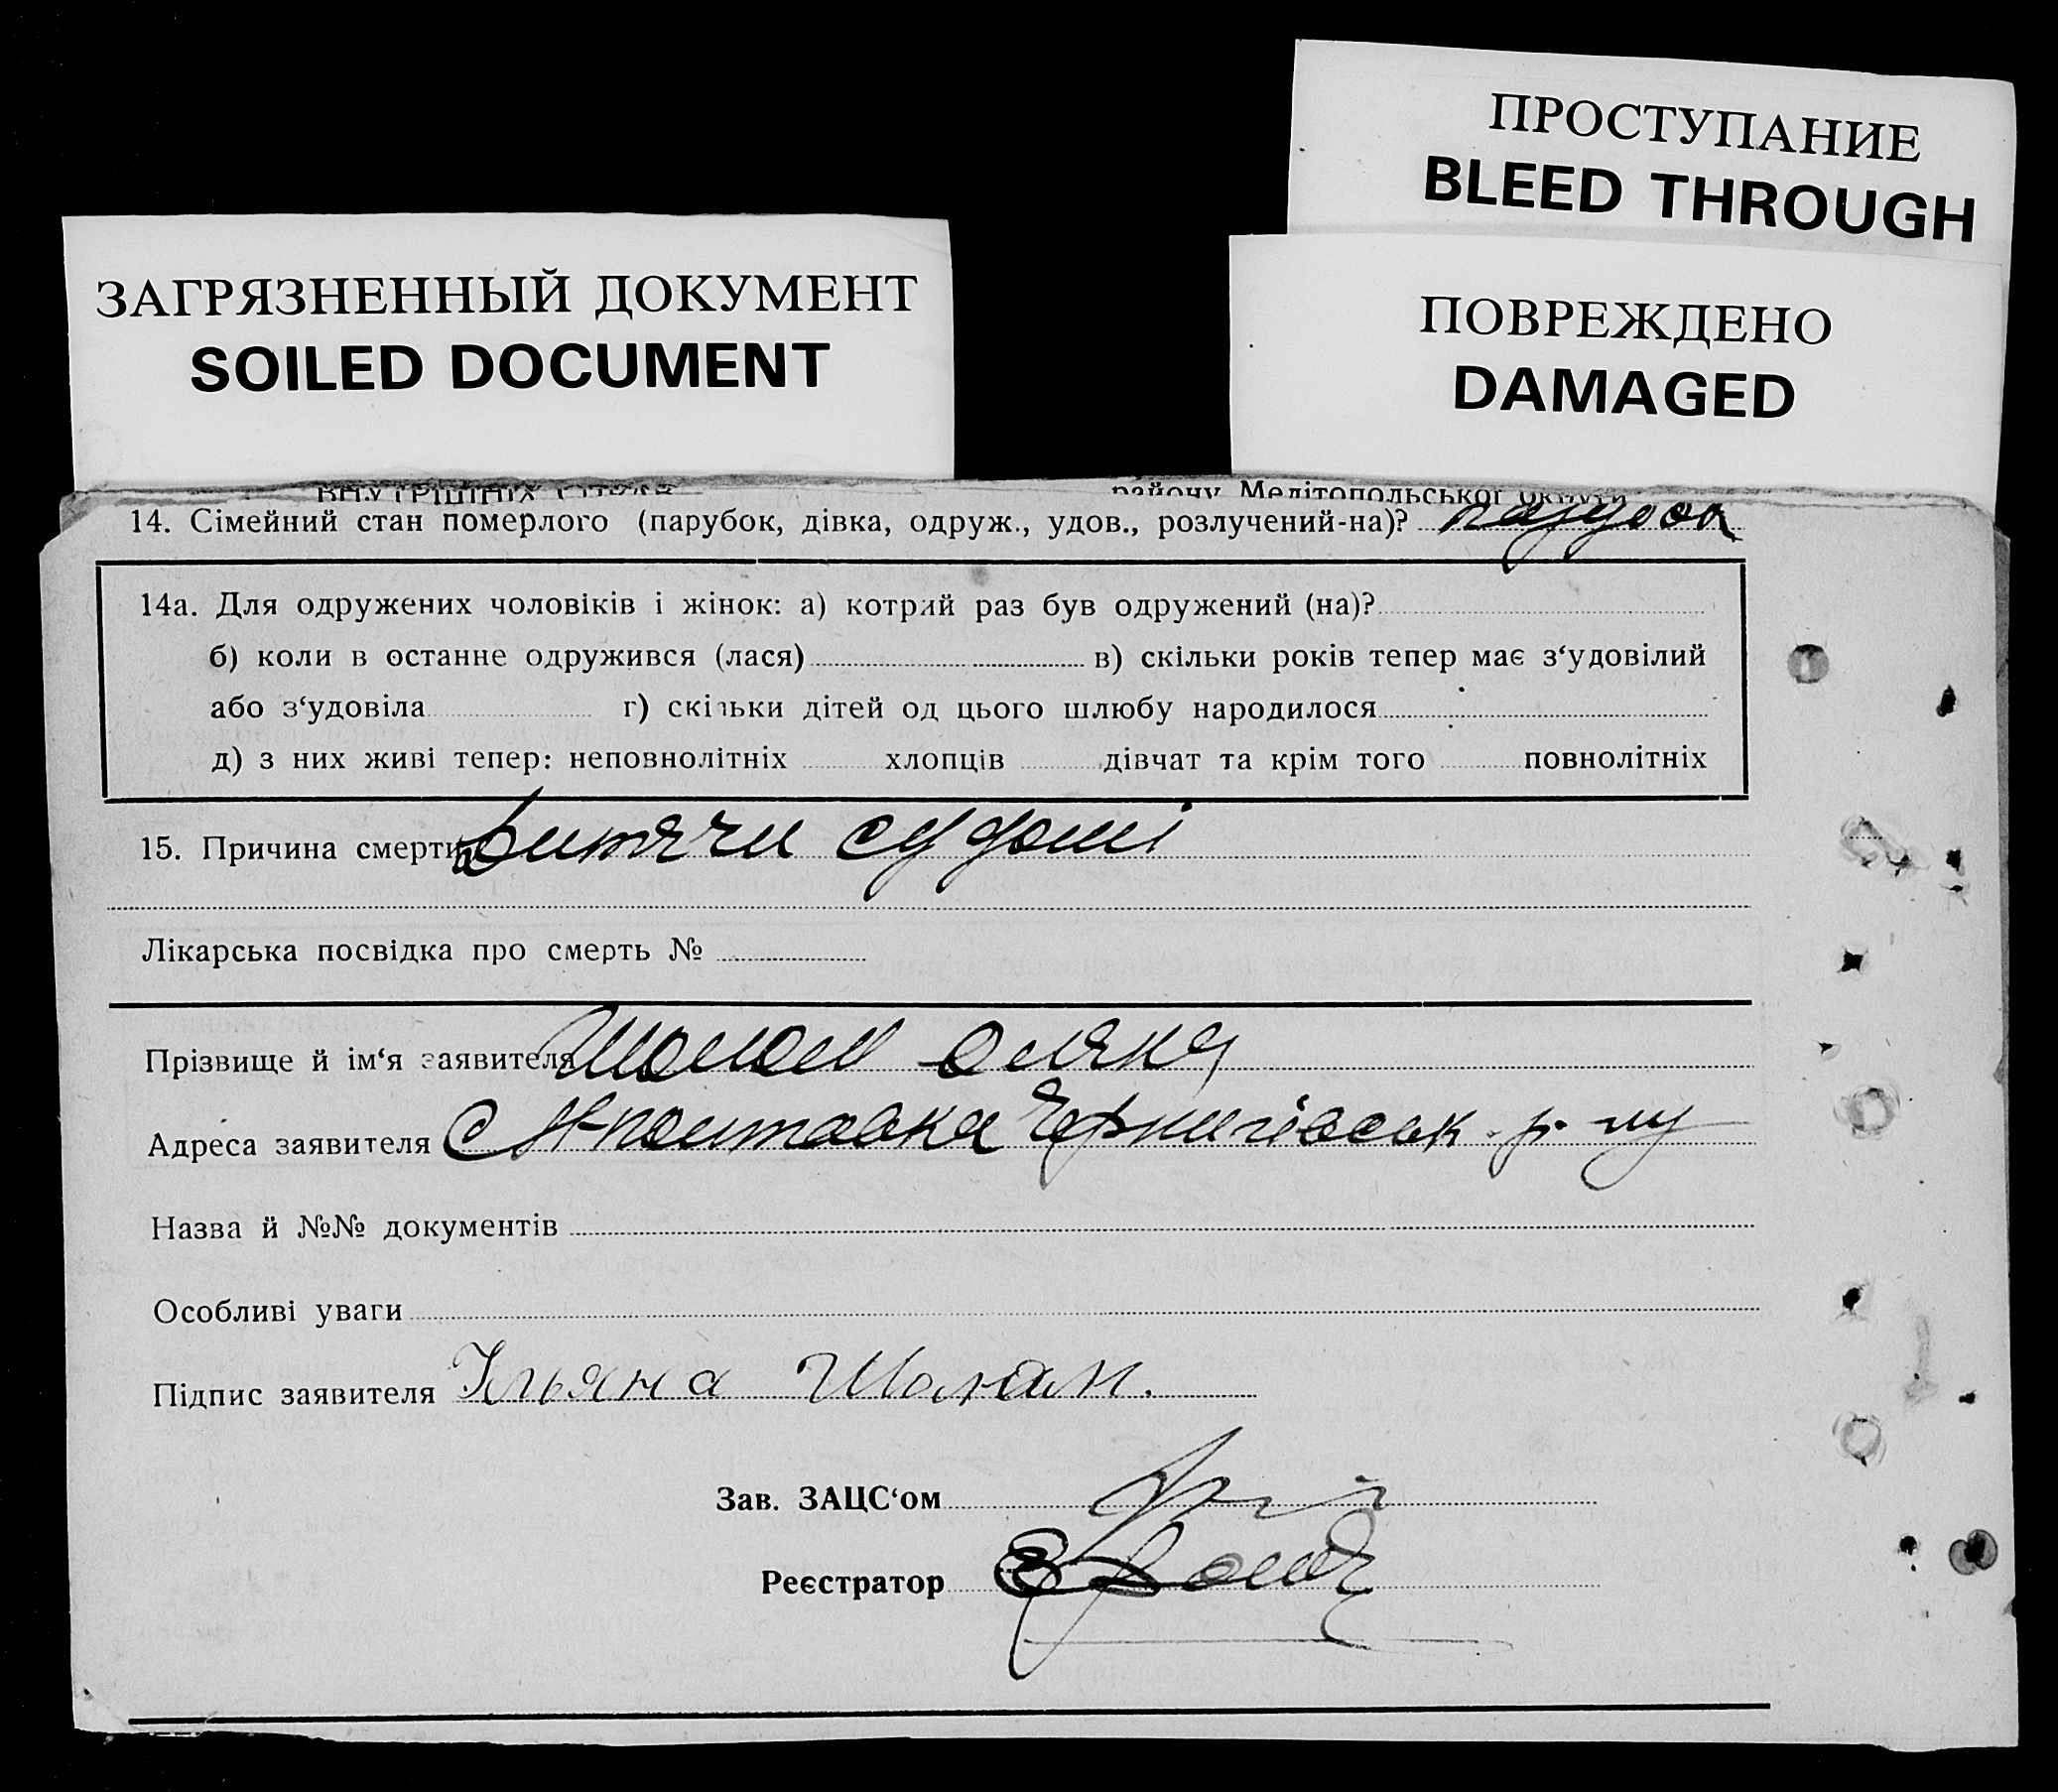 ПРОСТУПАНИЕ
BLEED THROUGH
ЗАГРЯЗНЕННЫЙ ДОКУМЕНТ
SOILED DOCUMENT
ПОВРЕЖДЕНО
DAMAGED
району Мелітопольської округи
14. Сімейний стан померлого (парубок, дівка, одруж., удов., розлучений-на)? парубок
14а. Для одружених чоловіків і жінок: а) котрий раз був одружений (на)?
б) коли в останне одружився (лася) в) скільки років тепер має з‘удовілий
або з‘удовіла г) скільки дітей од цього шлюбу народилося
д) з них живі тепер: неповнолітніх хлопців дівчат та крім того повнолітніх
15. Причина смерти Дитячи судомі
Лікарська посвідка про смерть №
Прізвище й ім‘я заявителя
Адреса заявителя С Чернигівськ. р-ну
Назва й №№ документів
Особливі уваги
Підпис заявителя Ульяна
Зав. ЗАЦС‘ом
Реєстратор